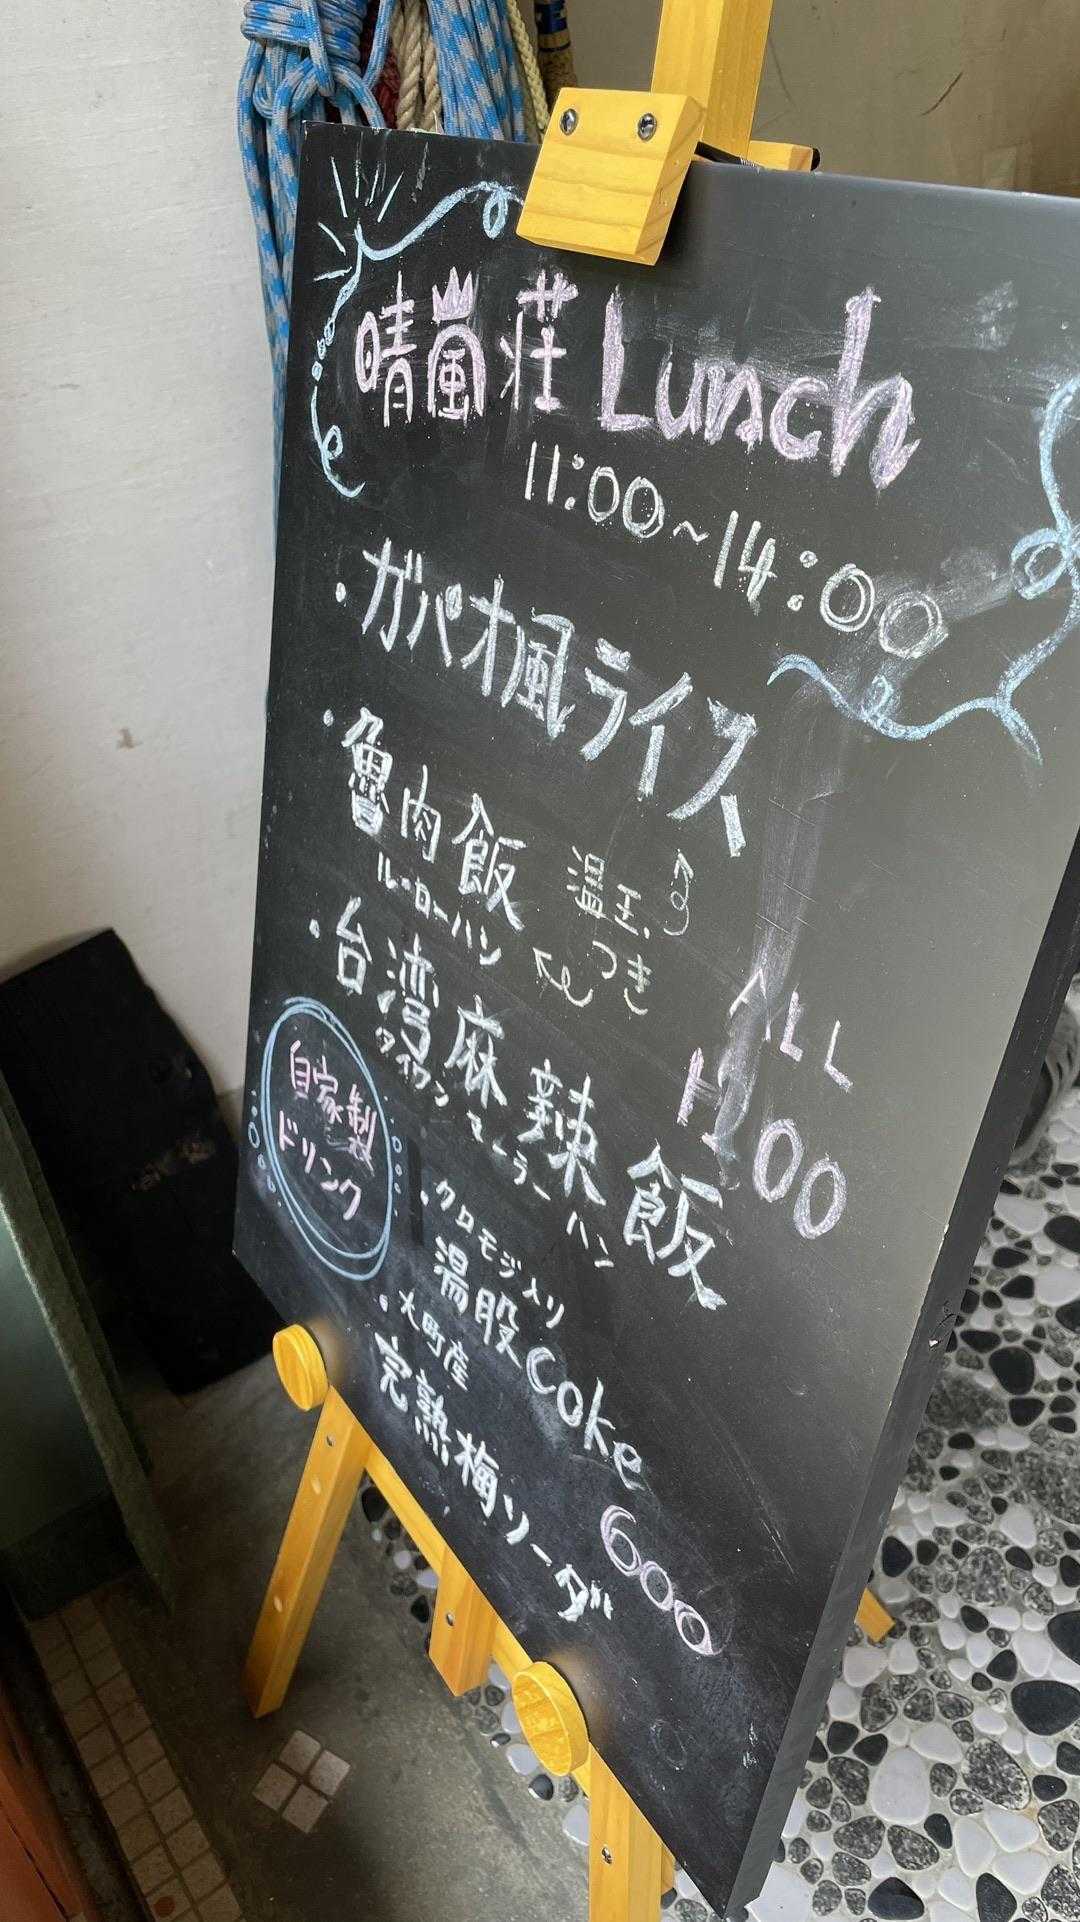 晴嵐荘 Lunch
11:00~14:00
・ガパオ風ライス
・魯肉飯
ルーローハン
温玉
つき
・台湾麻辣飯
タイワン マーラー ハン
ALL
1100
自家製
ドリンク
・クロモジ入り
湯股Coke
・大町産
完熟梅ソーダ
600